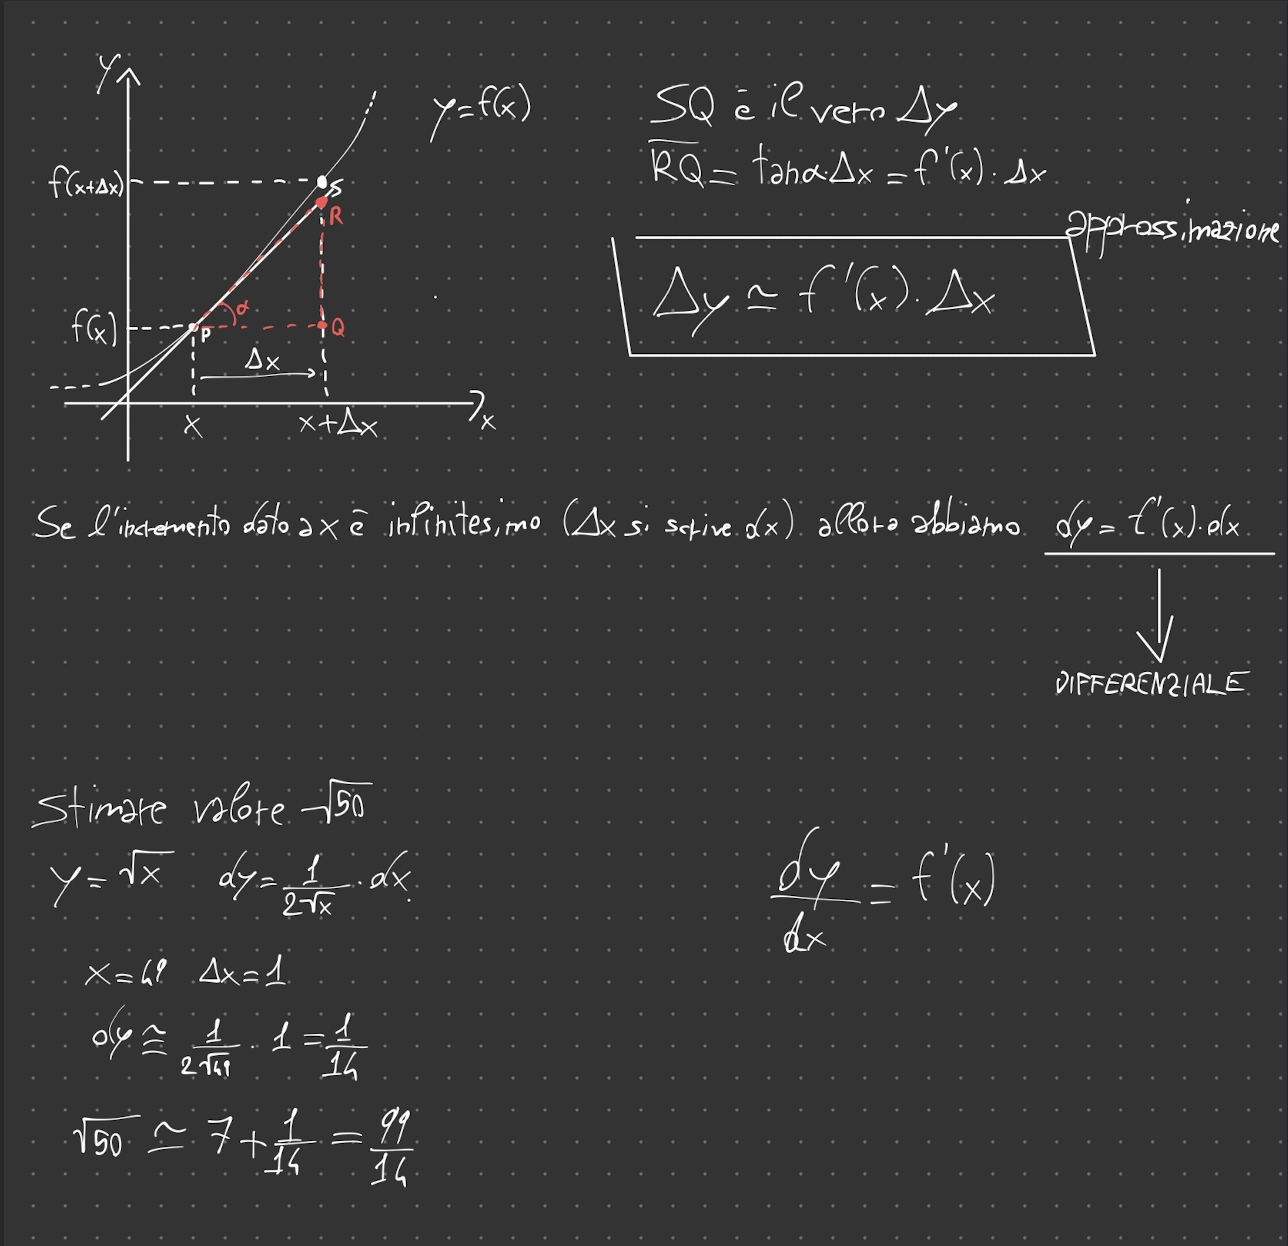 y
y=f(x)
f(x+Δx)
S
R
α
f(x)
P
Q
Δx
x
x+Δx
x
SQ è il vero Δy
RQ = tanα·Δx = f'(x)·Δx
approssimazione
Δy ≃ f'(x)·Δx
Se l'incremento dato a x è infinitesimo (Δx si scrive dx) allora abbiamo dy = f'(x)·dx
DIFFERENZIALE
Stimare valore √50
y = √x dy = 1/(2√x) · dx
dy/dx = f'(x)
x = 49 Δx = 1
dy ≅ 1/(2√49) · 1 = 1/14
√50 ≃ 7 + 1/14 = 99/14